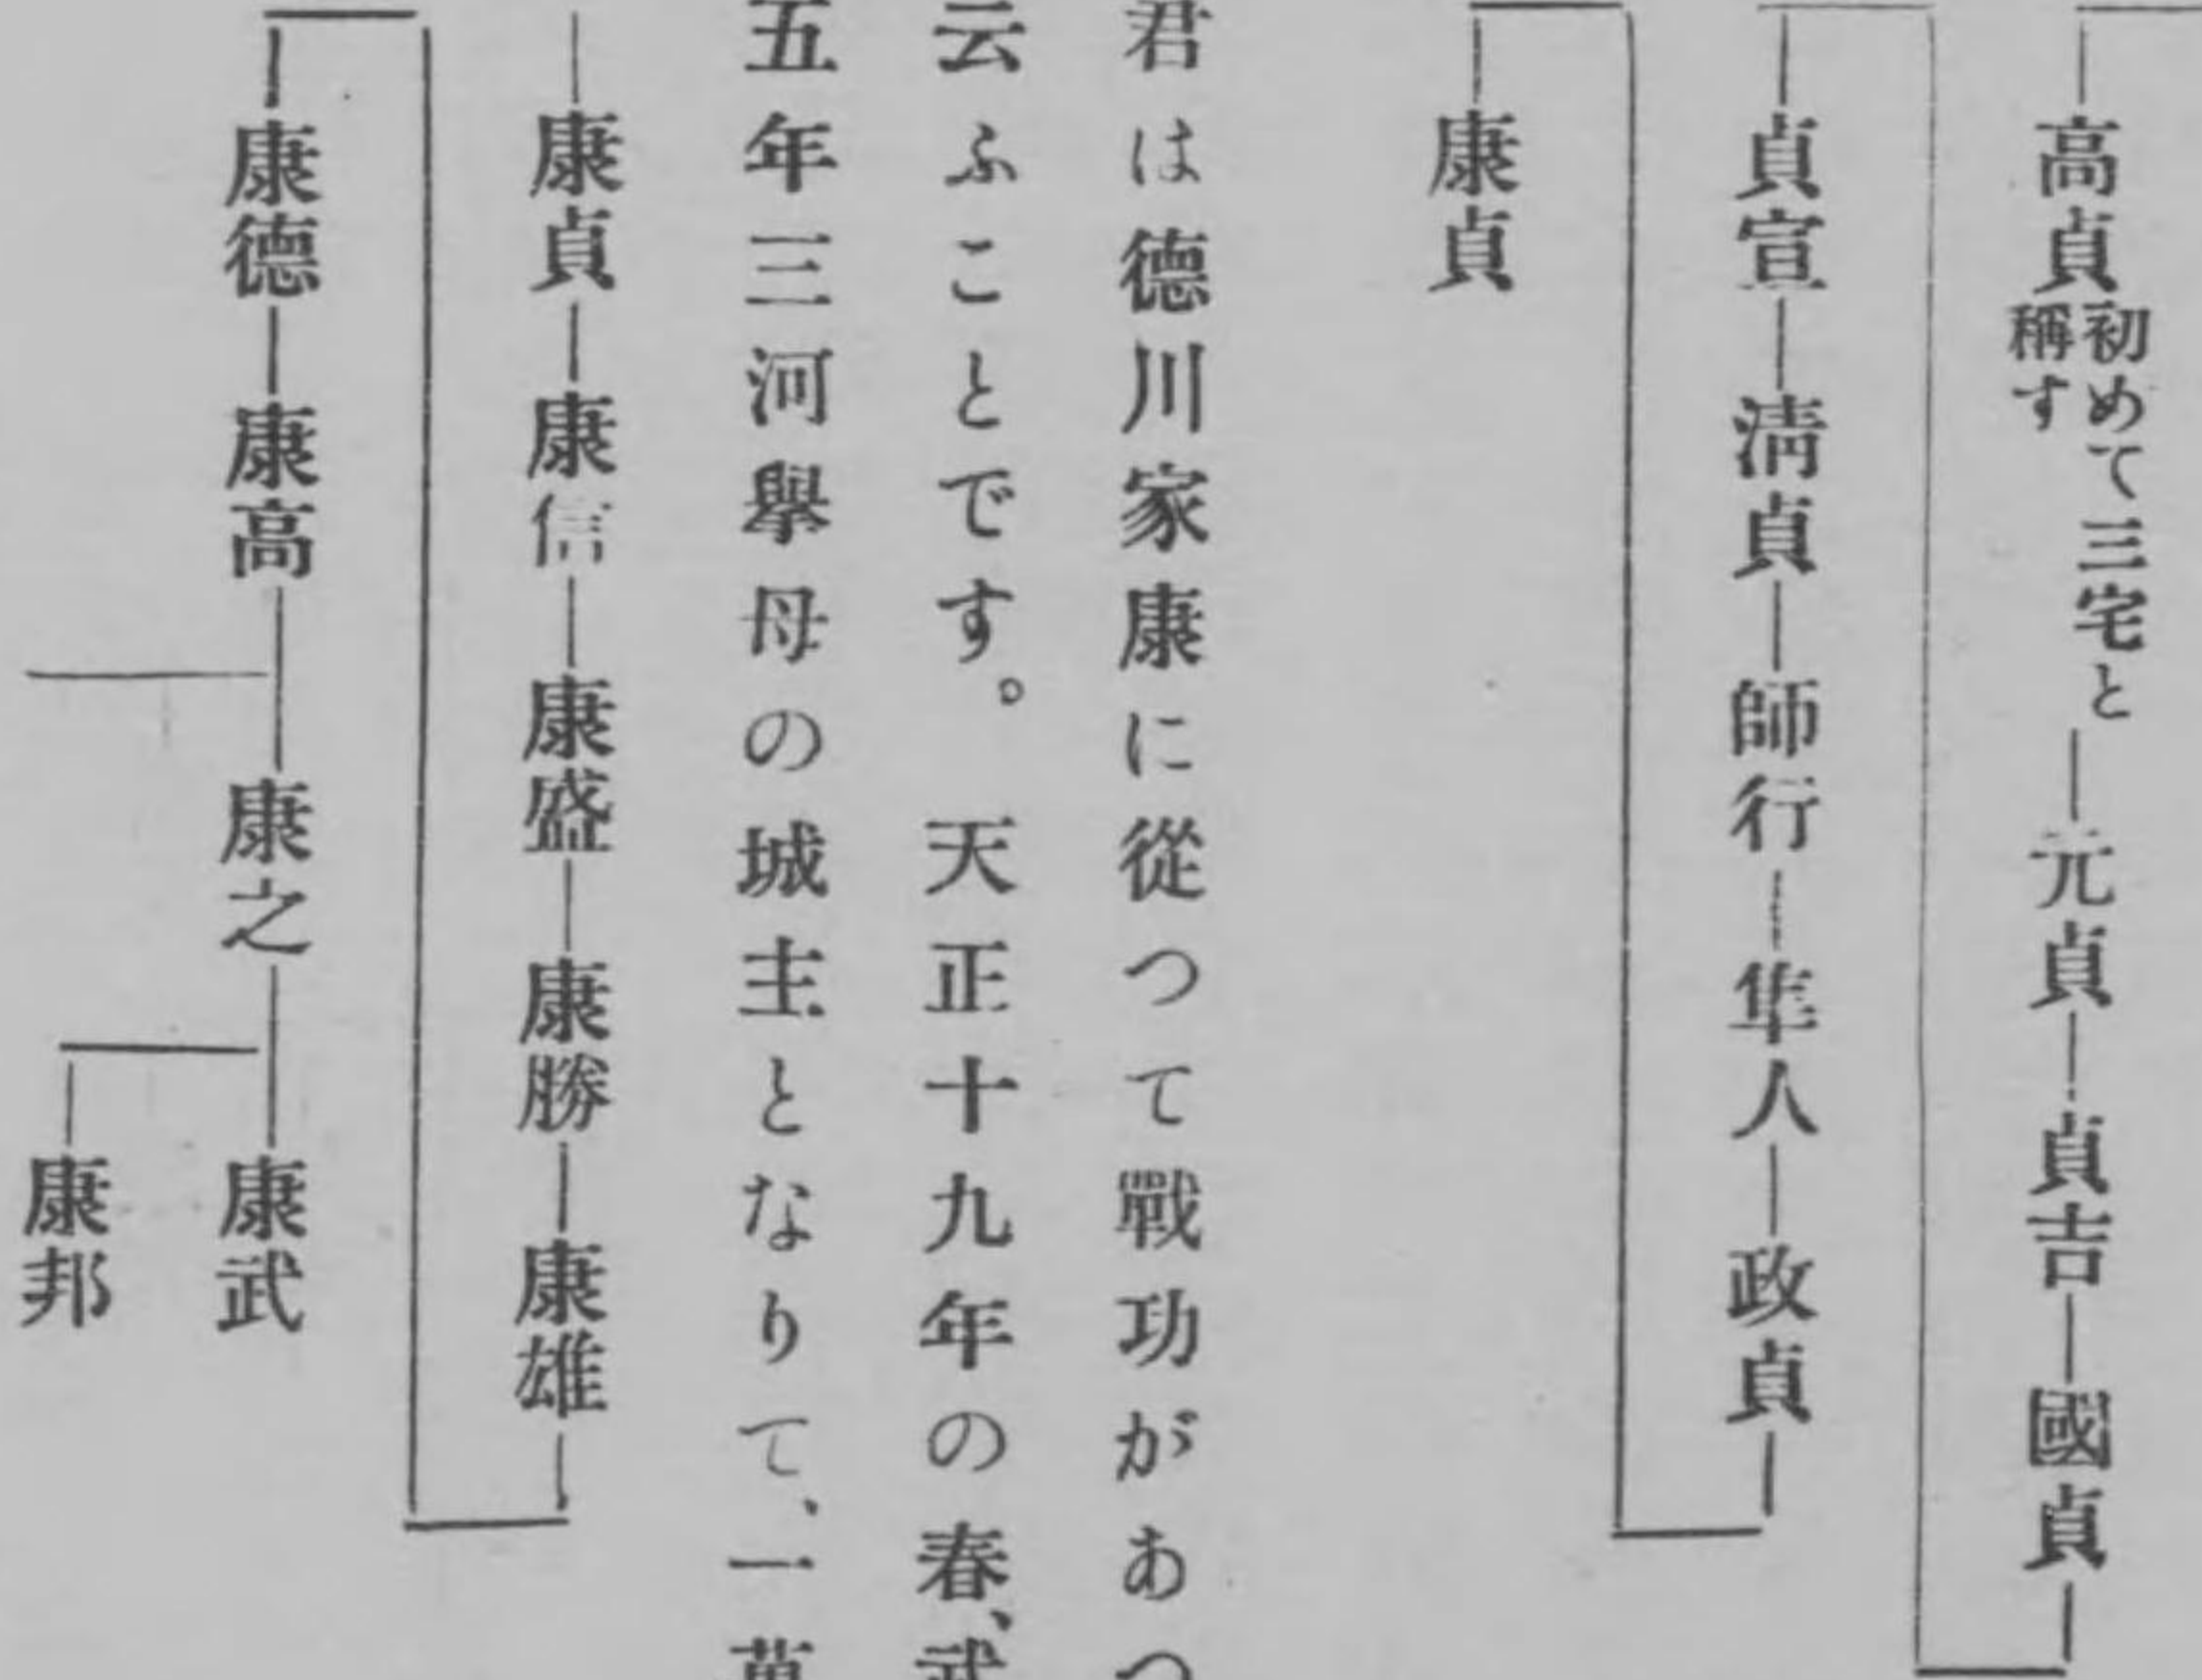 高貞初めて三宅と稱す―元貞―貞吉―國貞
貞宣―淸貞―師行―隼人―政貞
康貞
君は德川家康に從つて戰功があつ
云ふことです。天正十九年の春、武
五年三河擧母の城主となりて、一萬
康貞―康信―康盛―康勝―康雄
康德―康高―康之―康武
康邦